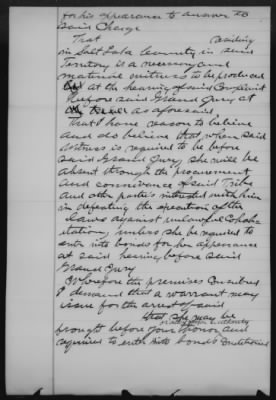 for his appearance to answer to
Said Charge
That residing
in Salt Lake County in said
Territory is a necessary and
material witness to be produced
at the hearing of said Complaint
before said Grand Jury at
as aforesaid
That I have reason to believe
and do believe that when said
witness is required to be before
said Grand Jury, she will be
absent through the procurement
and connivance of said
and other parties interested with him
in defeating the execution of the
laws against unlawful Cohabi
tation, unless she be required to
enter into bonds for her appearance
at said hearing before said
Grand Jury
Wherefore the premises Considered
I demand that a warrant may
issue for the arrest of said
that she may be
brought before Your Honor and
required to enter into bonds Conditioned